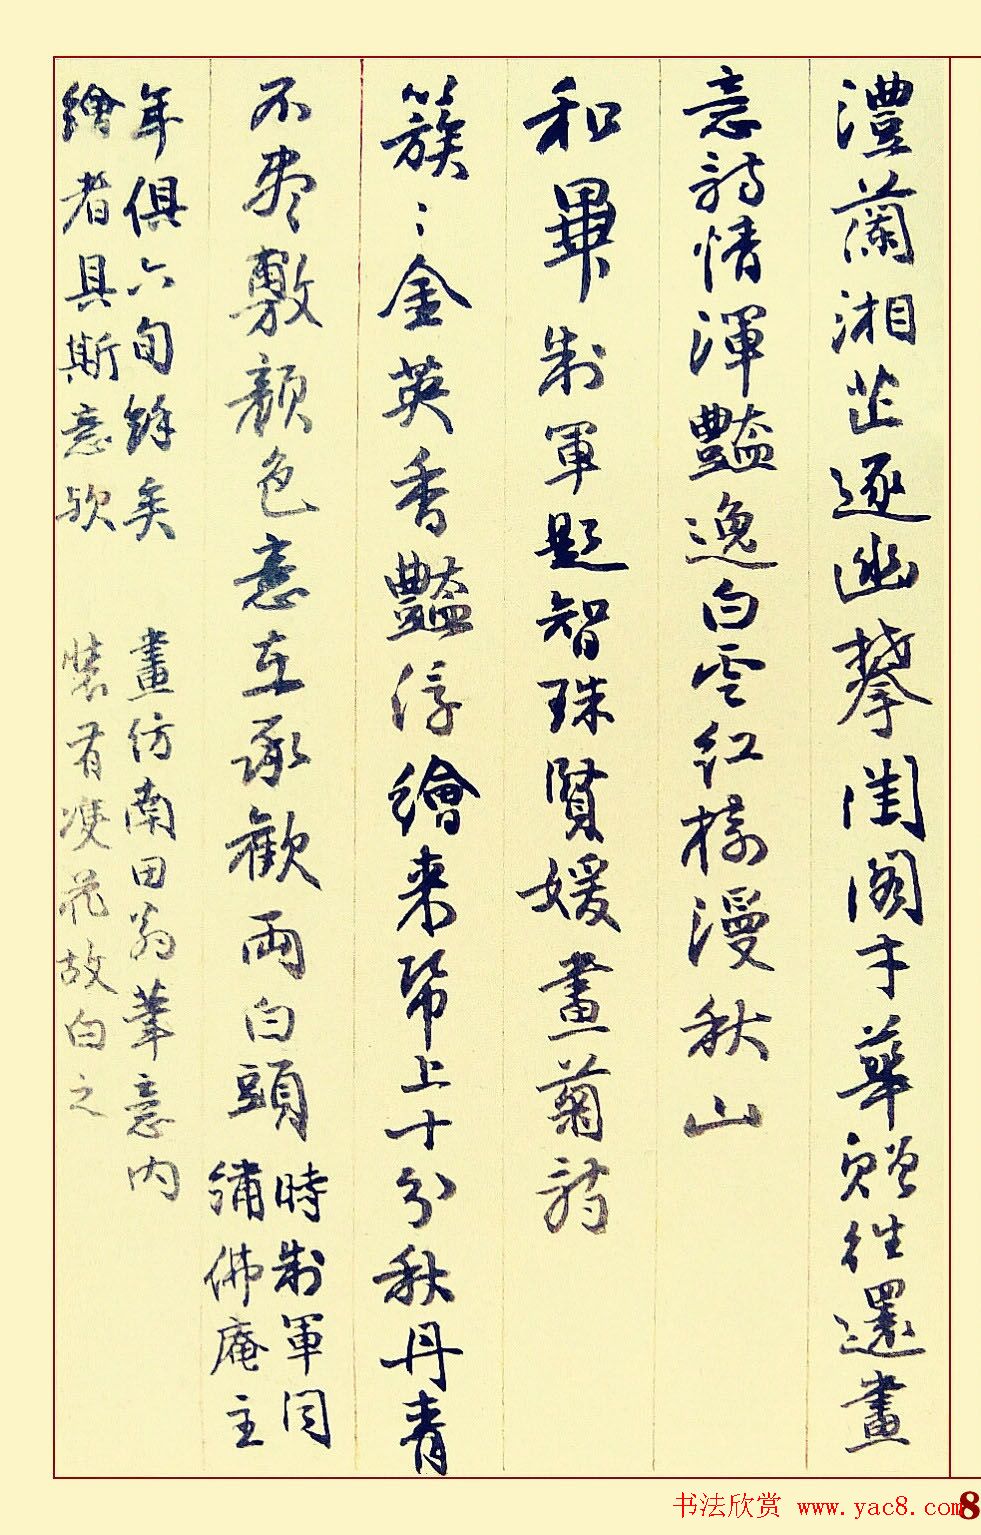 澧蘭湘芷逐幽攀閨閣才華贈往還畫
意詩情渾豔逸白雲紅樹漫秋山
和畢制軍題智珠賢媛畫菊詩
簇〻金英香豔浮繪来帋上十分秋丹青
不枣敷顏色意在承歡両白頭
時制軍同
繡佛庵主
年俱六旬餘矣
繪者具斯意欤
畫仿南田翁筆意内
裝有凌花故白之
书法欣赏 www.yac8.com
8